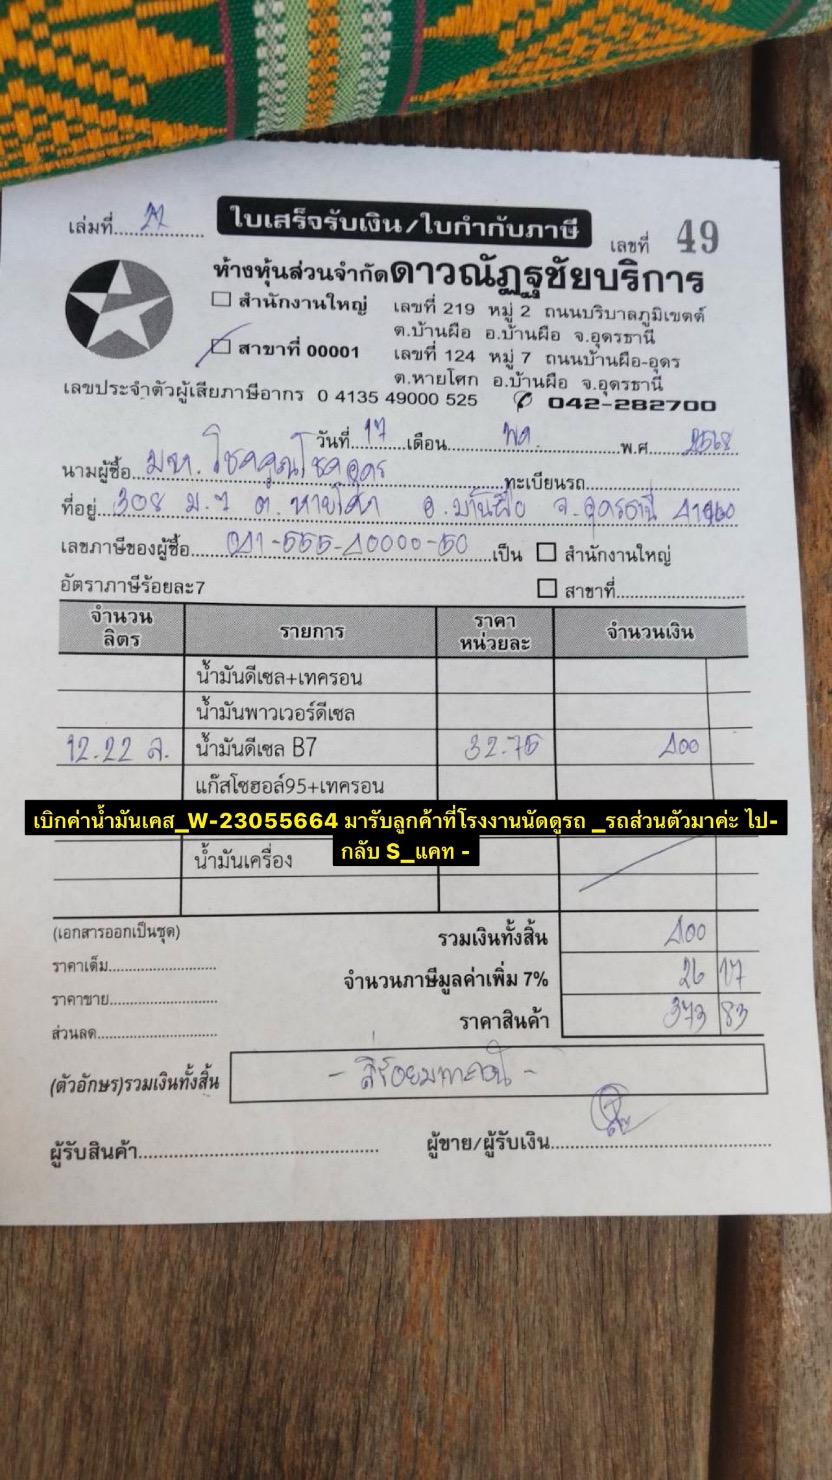 ใบเสร็จรับเงิน/ใบกำกับภาษี
เล่มที่ 22 เลขที่ 49
ห้างหุ้นส่วนจำกัดดาวณัฏฐชัยบริการ
สำนักงานใหญ่ เลขที่ 219 หมู่ 2 ถนนบริบาลภูมิเขตต์
ต.บ้านผือ อ.บ้านผือ จ.อุดรธานี
สาขาที่ 00001 เลขที่ 124 หมู่ 7 ถนนบ้านผือ-อุดร
ต.หายโศก อ.บ้านผือ จ.อุดรธานี
เลขประจำตัวผู้เสียภาษีอากร 0 4135 49000 525 042-282700
วันที่ 17 เดือน พค. พ.ศ 2568
นามผู้ซื้อ โชคคูณโชคอุดร ทะเบียนรถ
ที่อยู่ 308 ม.7 ต.หายโศก อ.บ้านผือ จ.อุดรธานี
เลขภาษีของผู้ซื้อ 041-555-40000-50 เป็น สำนักงานใหญ่
อัตราภาษีร้อยละ7 สาขาที่
จำนวนลิตร รายการ ราคาหน่วยละ จำนวนเงิน
น้ำมันดีเซล+เทครอน
น้ำมันพาวเวอร์ดีเซล
12.22 ล. น้ำมันดีเซล B7 32.75 400
แก๊สโซฮอล์95+เทครอน
เบิกค่าน้ำมันเคส_W-23055664 มารับลูกค้าที่โรงงานนัดดูรถ _รถส่วนตัวมาค่ะ ไป-
กลับ S_แคท -
น้ำมันเครื่อง
(เอกสารออกเป็นชุด) รวมเงินทั้งสิ้น 400
ราคาเต็ม จำนวนภาษีมูลค่าเพิ่ม 7% 26 17
ราคาขาย ราคาสินค้า 373 83
ส่วนลด
(ตัวอักษร)รวมเงินทั้งสิ้น - สี่ร้อยบาทถ้วน -
ผู้รับสินค้า ผู้ขาย/ผู้รับเงิน